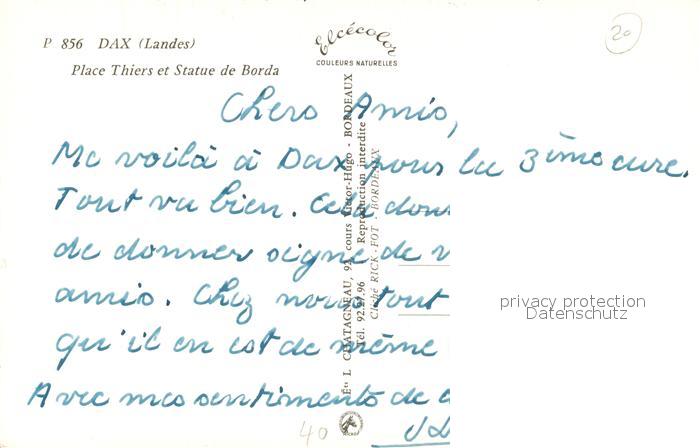 P 856 DAX (Landes)
Place Thiers et Statue de Borda
Elcécolor
COULEURS NATURELLES
20
Chers Amis,
Me voilà à Dax pour la 3ème cure.
Tout va bien. Cela
de donner signe de
amis. Chez nous tout
qu'il en est de même
Avec mes sentiments de
40
Éts L. CHATAGNEAU, 92, cours Victor-Hugo - BORDEAUX
Tél. 92.27.96 Reproduction interdite
Cliché RICK-FOT - BORDEAUX
privacy protection
Datenschutz